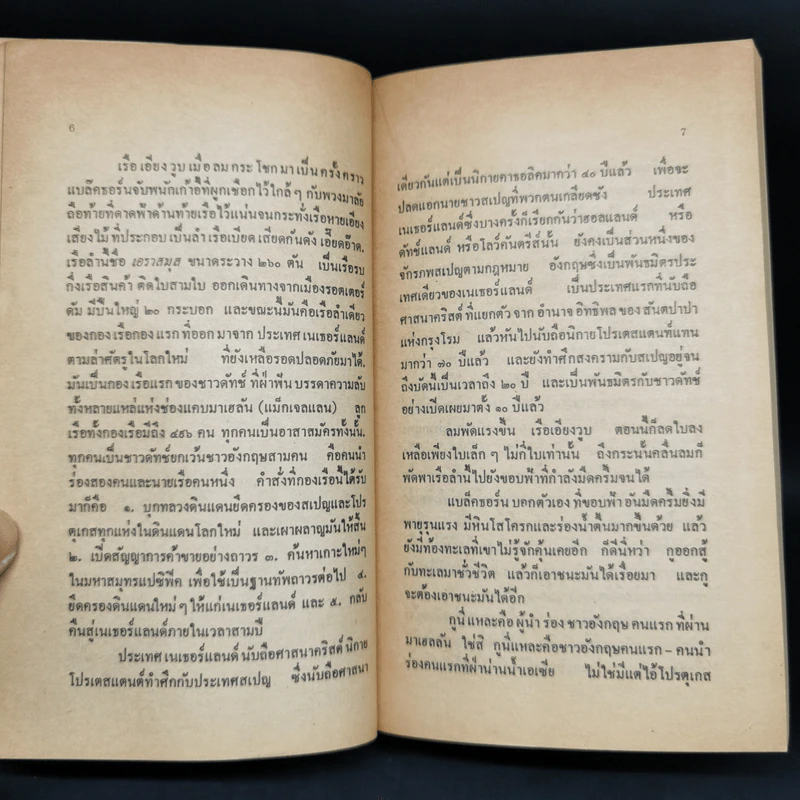 6
เรือเอียงวูบเมื่อลมกระโชกมาเป็นครั้งคราว
แบล๊คธอร์นจับพนักเก้าอี้ที่ผูกเชือกไว้ใกล้ๆ กับพวงมาลัย
ถือท้ายที่ดาดฟ้าด้านท้ายเรือไว้แน่นจนกระทั่งเรือหายเอียง
เสียงไม้ที่ประกอบเป็นลำเรือเบียดเสียดกันดังเอี๊ยดอ๊าด.
เรือลำนี้ชื่อ เอราสมุส ขนาดระวาง ๒๖๐ ตัน เป็นเรือรบ
กึ่งเรือสินค้า ติดใบสามใบ ออกเดินทางจากเมืองรอตเตอร์
ดัม มีปืนใหญ่ ๒๐ กระบอก และขณะนี้มันคือเรือลำเดียว
ของกองเรือกองแรกที่ออกมาจากประเทศเนเธอร์แลนด์
ตามล่าศัตรูในโลกใหม่ ที่ยังเหลือรอดปลอดภัยมาได้.
มันเป็นกองเรือแรกของชาวดัทช์ ที่ฝ่าฟันบรรดาความลับ
ทั้งหลายแหล่แห่งช่องแคบมาเฮลัน (แม็กเจลแลน) ลูก
เรือทั้งกองเรือมีถึง ๔๙๖ คน ทุกคนเป็นอาสาสมัครทั้งนั้น.
ทุกคนเป็นชาวดัทช์ยกเว้นชาวอังกฤษสามคน คือคนนำ
ร่องสองคนและนายเรือคนหนึ่ง คำสั่งที่กองเรือนี้ได้รับ
มาก็คือ ๑. บุกทลวงดินแดนยึดครองของสเปญและโปร
ตุเกสทุกแห่งในดินแดนโลกใหม่ และเผาผลาญมันให้สิ้น
๒. เปิดสัญญาการค้าขายอย่างถาวร ๓. ค้นหาเกาะใหม่ๆ
ในมหาสมุทรแปซิฟิค เพื่อใช้เป็นฐานทัพถาวรต่อไป ๔.
ยึดครองดินแดนใหม่ๆ ให้แก่เนเธอร์แลนด์ และ ๕. กลับ
คืนสู่เนเธอร์แลนด์ภายในเวลาสามปี
ประเทศเนเธอร์แลนด์นับถือศาสนาคริสต์นิกาย
โปรเตสแตนต์ทำศึกกับประเทศสเปญ ซึ่งนับถือศาสนา
7
เดียวกันแต่เป็นนิกายคาธอลิคมากว่า ๔๐ ปีแล้ว เพื่อจะ
ปลดแอกนายชาวสเปญที่พวกตนเกลียดชัง ประเทศ
เนเธอร์แลนด์ซึ่งบางครั้งก็เรียกกันว่าฮอลแลนด์ หรือ
ดัทช์แลนด์ หรือโลว์คันตรีส์นั้น ยังคงเป็นส่วนหนึ่งของ
จักรภพสเปญตามกฎหมาย อังกฤษซึ่งเป็นพันธมิตรประ
เทศเดียวของเนเธอร์แลนด์ เป็นประเทศแรกที่นับถือ
ศาสนาคริสต์ ที่แยกตัวจากอำนาจอิทธิพลของสันตปาปา
แห่งกรุงโรม แล้วหันไปนับถือนิกายโปรเตสแตนท์แทน
มากว่า ๗๐ ปีแล้ว และยังทำศึกสงครามกับสเปญอยู่จน
ถึงบัดนี้เป็นเวลาถึง ๒๐ ปี และเป็นพันธมิตรกับชาวดัทช์
อย่างเปิดเผยมาตั้ง ๑๐ ปีแล้ว
ลมพัดแรงขึ้น เรือเอียงวูบ ตอนนี้ก็ลดใบลง
เหลือเพียงใบเล็กๆ ไม่กี่ใบเท่านั้น ถึงกระนั้นคลื่นลมก็
พัดพาเรือลำนี้ไปยังขอบฟ้าที่กำลังมืดครึ้มจนได้
แบล็คธอร์นบอกตัวเองที่ขอบฟ้าอันมืดครึ้มยิ่งมี
พายุรุนแรง มีหินโสโครกและร่องน้ำตื้นมากขึ้นด้วย แล้ว
ยังมีท้องทะเลที่เขาไม่รู้จักคุ้นเคยอีก ก็ดีนี่หว่า กูออกสู้
กับทะเลมาชั่วชีวิต แล้วก็เอาชนะมันได้เรื่อยมา และกู
จะต้องเอาชนะมันได้อีก
กูนี่แหละคือผู้นำร่องชาวอังกฤษคนแรกที่ผ่าน
มาเฮลลัน ใช่สิ กูนี่แหละคือชาวอังกฤษคนแรก – คนนำ
ร่องคนแรกที่ฝ่าน่านน้ำเอเซีย ไม่ใช่มีแต่ไอ้โปรตุเกส